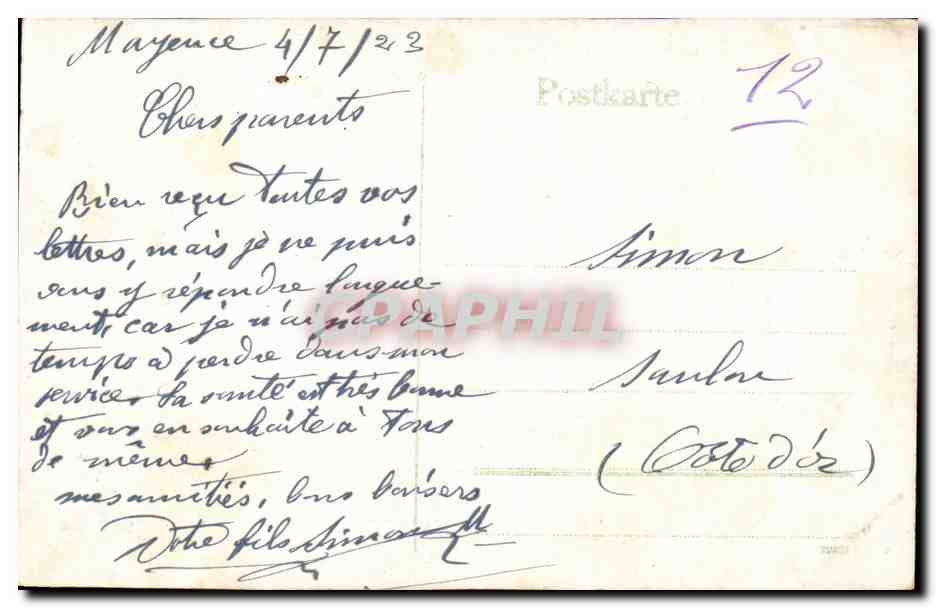 Mayence 4/7/23
Postkarte
12
Chers parents
Bien reçu toutes vos
lettres, mais je ne puis
vous y répondre longue-
ment, car je n'ai pas de
temps à perdre dans mon
service. La santé est très bonne
et vous en souhaite à tous
de même.
mes amitiés, bons baisers
Votre fils Simon M
Simon
Saulon
(Côte d'Or)
CPAPHIL